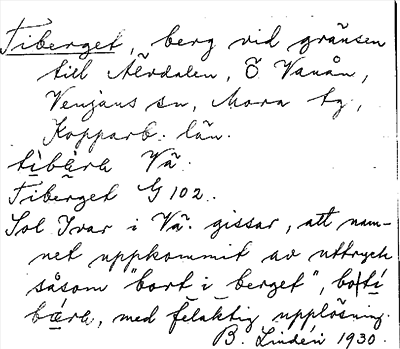 Tiberget, berg vid gränsen
till Älvdalen, Ö Vanån,
Venjans sn, Mora tg,
Kopparb. län.
tìbärh Vä.
Tiberget G 102.
Sol Ivar i Vä. gissar, att nam-
net uppkommit av uttryck
såsom "bort i berget", 
bärh, med felaktig upplösning.
B. Lindén 1930.